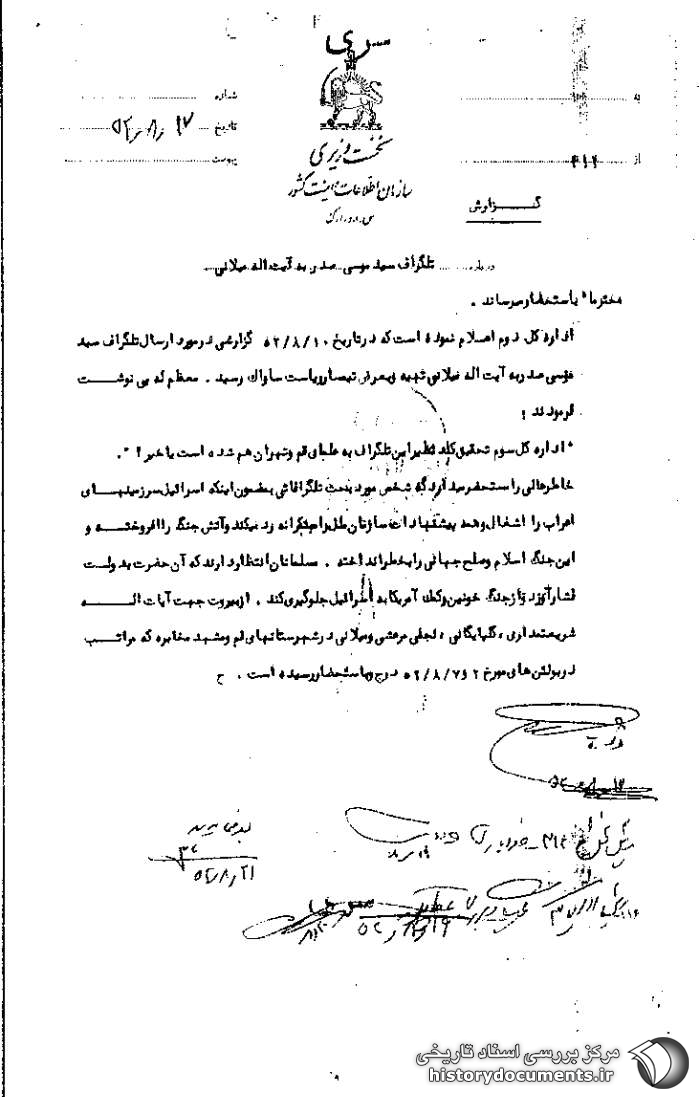 سری
به
شماره
تاریخ ۵۲/۸/۱۷
از ۳۱۲
پیوست
نخست وزیری
سازمان اطلاعات و امنیت کشور
س.ا.و.ا.ک
گزارش
درباره تلگراف سید موسی صدر به آیت اله میلانی
محترما" باستحضار میرساند .
اداره کل دوم اعلام نموده است که در تاریخ ۵۲/۸/۱۰ گزارشی در مورد ارسال تلگراف سید
موسی صدر به آیت اله میلانی تهیه و بعرض تیمسار ریاست ساواک رسید . معظم له پی نوشت
فرمودند :
" اداره کل سوم تحقیق کند نظیر این تلگراف به علمای قم و تهران هم شده است یا خیر ؟ " .
خاطر عالی را مستحضر میدارد که شخص مورد بحث تلگرافاتی بمضمون اینکه اسرائیل سرزمینهای
اعراب را اشغال و همه پیشنهادات سازمان ملل را رد میکند و آتش جنگ را افروخته و
این جنگ اسلام و صلح جهانی را بخطر انداخته . مسلمانان انتظار دارند که آن حضرت بدولت
فشار آورد تا از جنگ خونین و کمک آمریکا به اسرائیل جلوگیری کند . از بیروت جهت آیات اله
شریعتمداری ، گلپایگانی ، نجفی مرعشی و میلانی در شهرستانهای قم و مشهد مخابره که مراتب
در بولتن های مورخ ۲ و ۵۲/۸/۷ درج و باستحضار رسیده است . ح
۵۲/۸/۲۱
مرکز بررسی اسناد تاریخی
historydocuments.ir